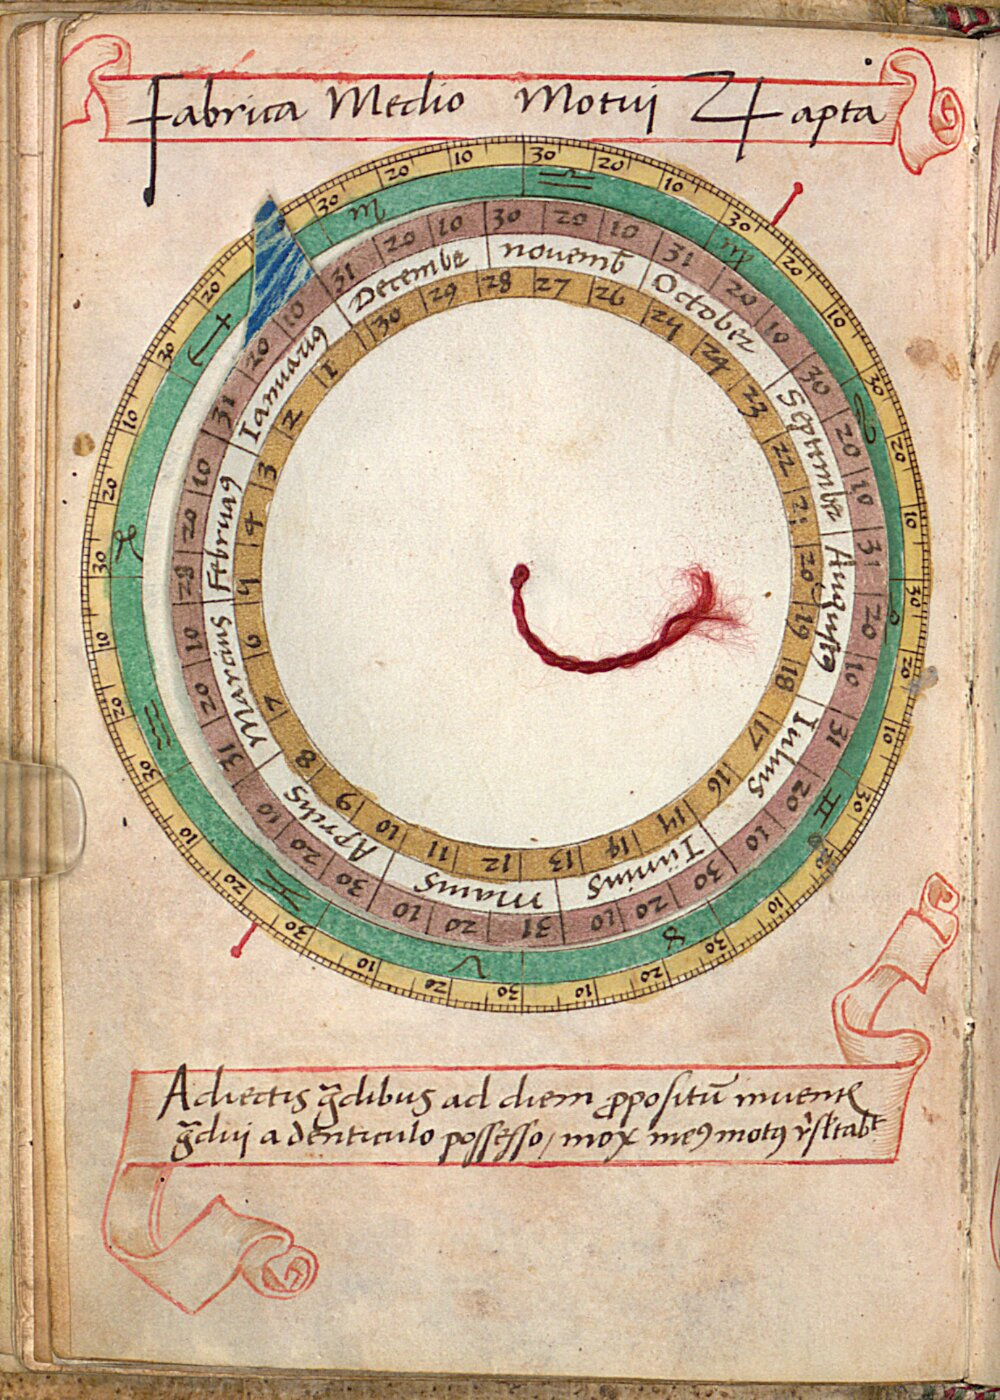 Fabrica Medio Motui ♃ apta
30 20 10 30 20 10 30 20 10 30 20 10 30 20 10 30 20 10 30 20 10 30 20 10 30 20 10 30 20 10 30 20 10 30 20 10
♎ ♍ ♌ ♋ ♊ ♉ ♈ ♓ ♒ ♑ ♐ ♏
10 20 31 10 20 28 10 20 31 10 20 30 10 20 31 10 20 30 10 20 31 10 20 31 10 20 30 10 20 31 10 20 30 10 20 31
Ianuariꝯ
Februaꝯ
Marcius
Aprilis
Maius
Iunius
Iulius
Augustꝯ
September
October
novemb̄
Decembe
1 2 3 4 5 6 7 8 9 10 11 12 13 14 14 16 17 18 19 20 21 22 23 24 24 26 27 28 29 30
Adiectis g̃dibus ad diem ꝓpositū
g̃dui a denticulo possesso, mox motꝯ